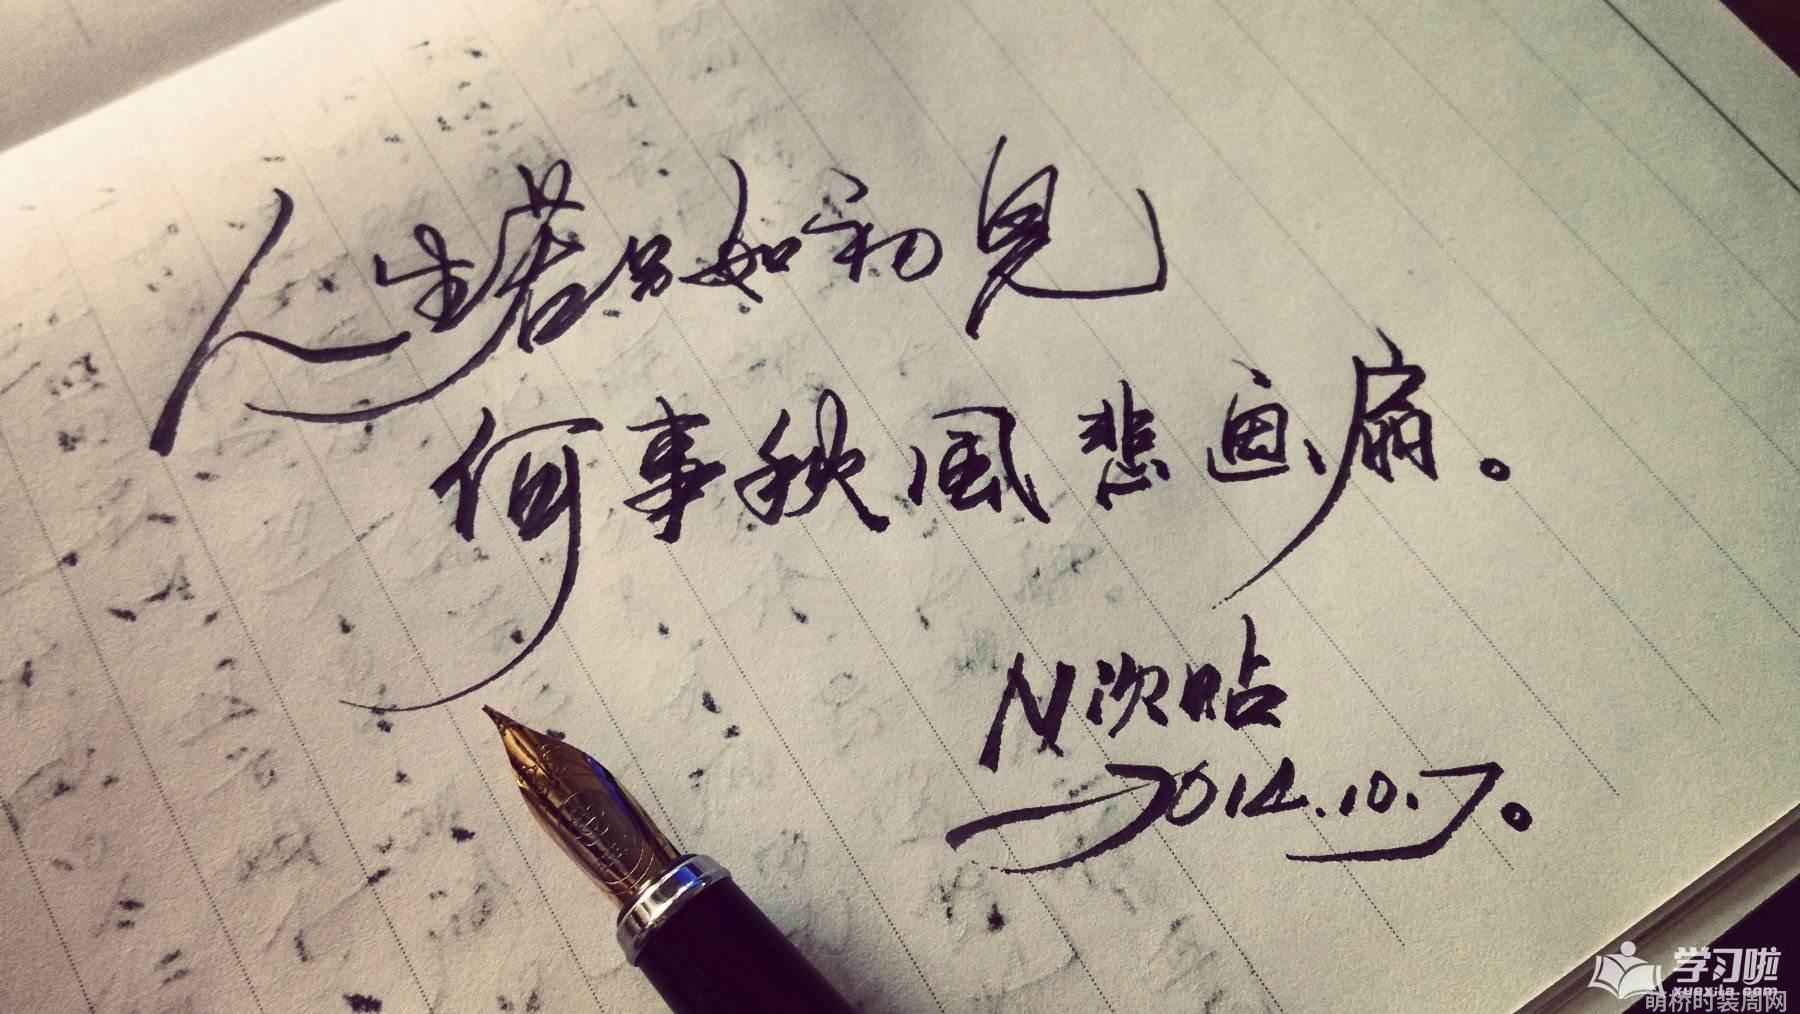 人生若只如初見
何事秋風悲画扇。
N次帖
2014.10.7。
学习啦
xuexila.com
萌桥时装周网